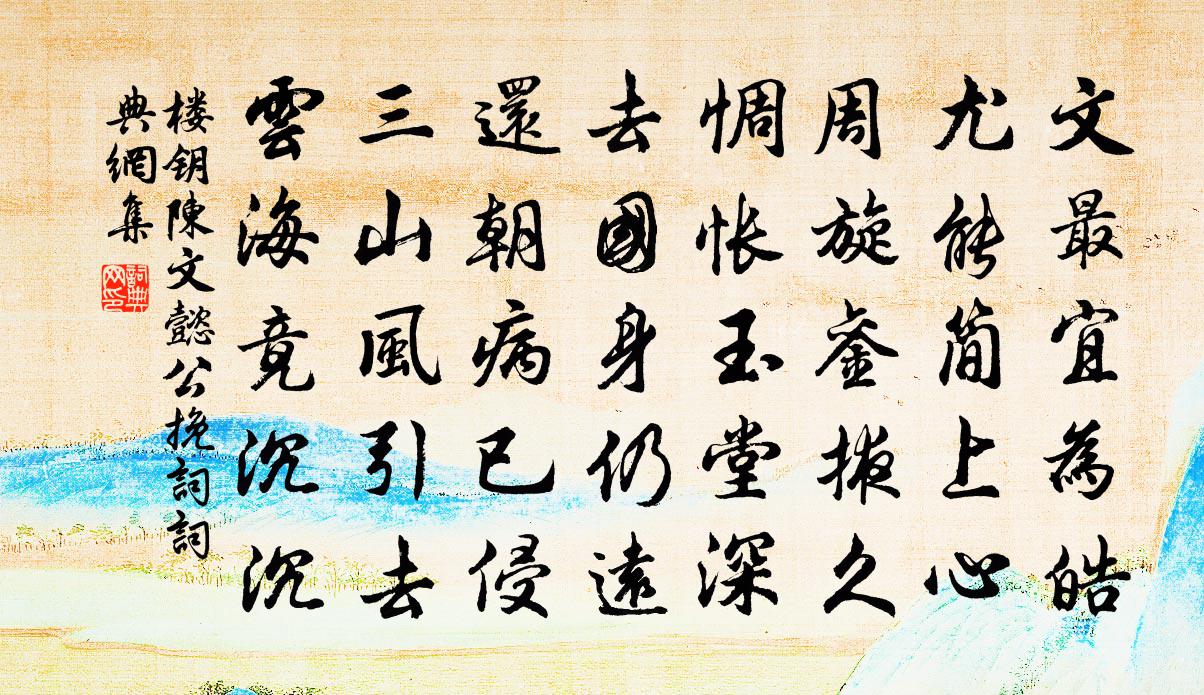 文最宜為皓
尤能簡上心
周旋銮掖久
惆怅玉堂深
去國身仍遠
還朝病已侵
三山風引去
雲海竟沉沉
楼钥陳文懿公挽詞詞
典網集
詞典
网印